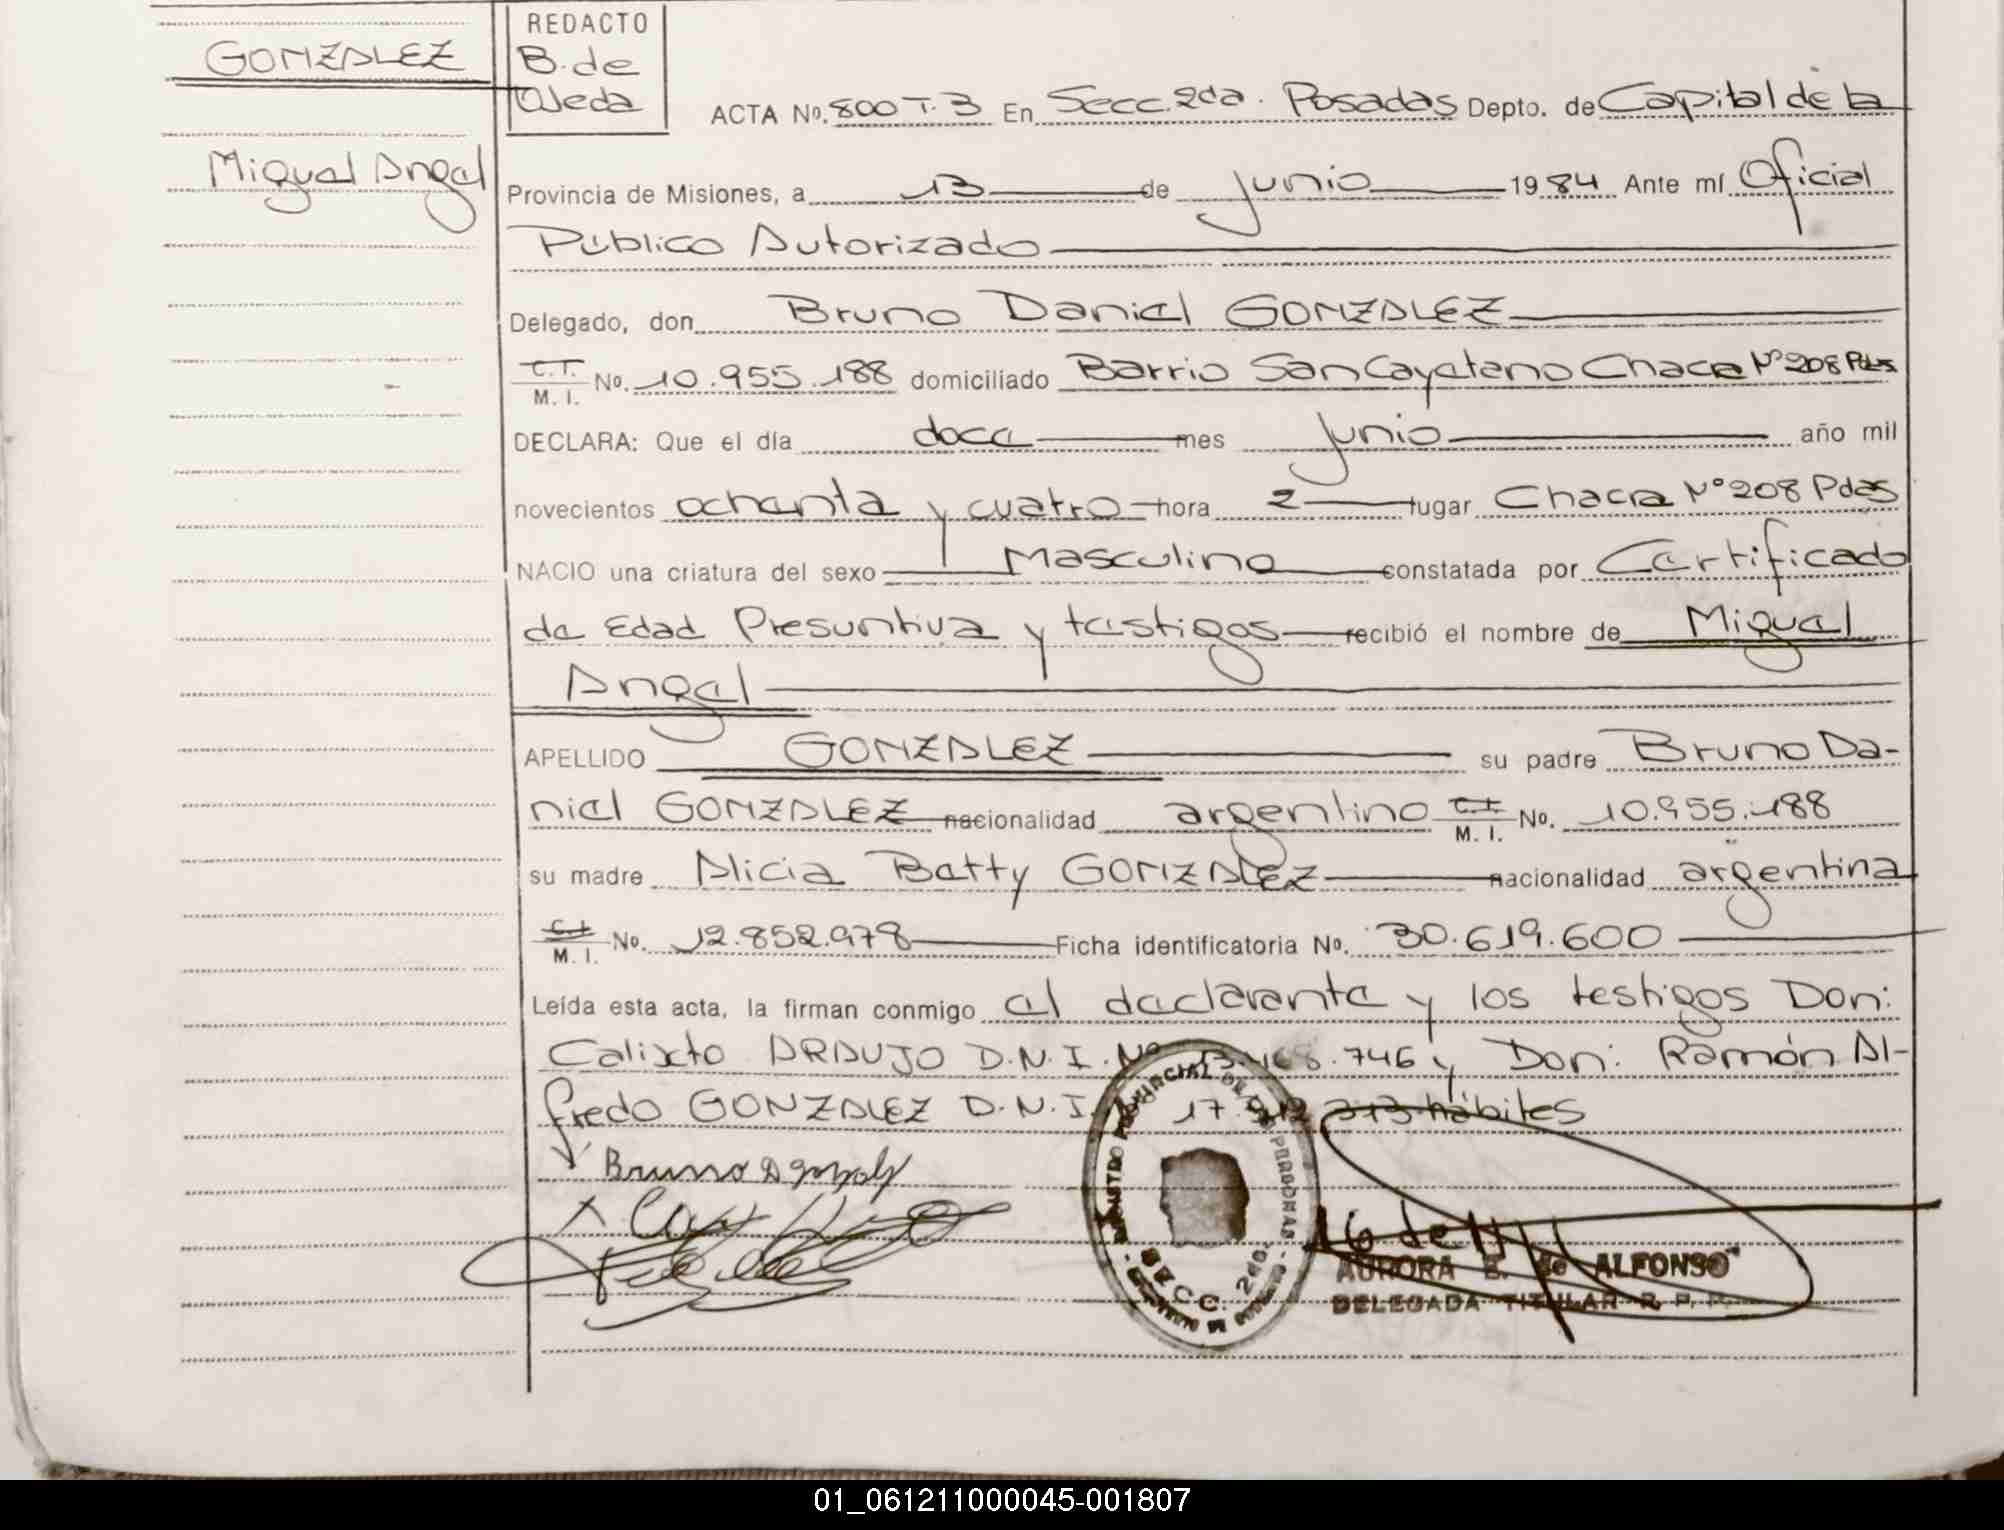 GONZALEZ
Miguel Angel
REDACTO
B. de
Ojeda
ACTA No. 800 T. 3 En Secc. 2da. Posadas Depto. de Capital de la
Provincia de Misiones, a 13 de Junio 1984 Ante mí Oficial
Público Autorizado
Delegado, don Bruno Daniel GONZALEZ
C.I. M. I. No. 10.955.188 domiciliado Barrio San Cayetano Chacra Nº 208 Pdas
DECLARA: Que el día doce mes Junio año mil
novecientos ochenta y cuatro hora 2 lugar Chacra Nº 208 Pdas
NACIO una criatura del sexo Masculino constatada por Certificado
de Edad Presuntiva y testigos recibió el nombre de Miguel
Angel
APELLIDO GONZALEZ su padre Bruno Da-
niel GONZALEZ nacionalidad argentino C.I. M. I. No. 10.955.188
su madre Alicia Betty GONZALEZ nacionalidad argentina
C.I. M. I. No. 12.852.978 Ficha identificatoria No. 30.619.600
Leída esta acta, la firman conmigo el declarante y los testigos Don:
Calixto ARAUJO D.N.I. Nº 13.468.746 y Don: Ramón Al-
fredo GONZALEZ D.N.I. 17. hábiles
Bruno D
SECC. 2da.
AURORA de ALFONSO
DELEGADA TITULAR R. P. P.
01_061211000045-001807